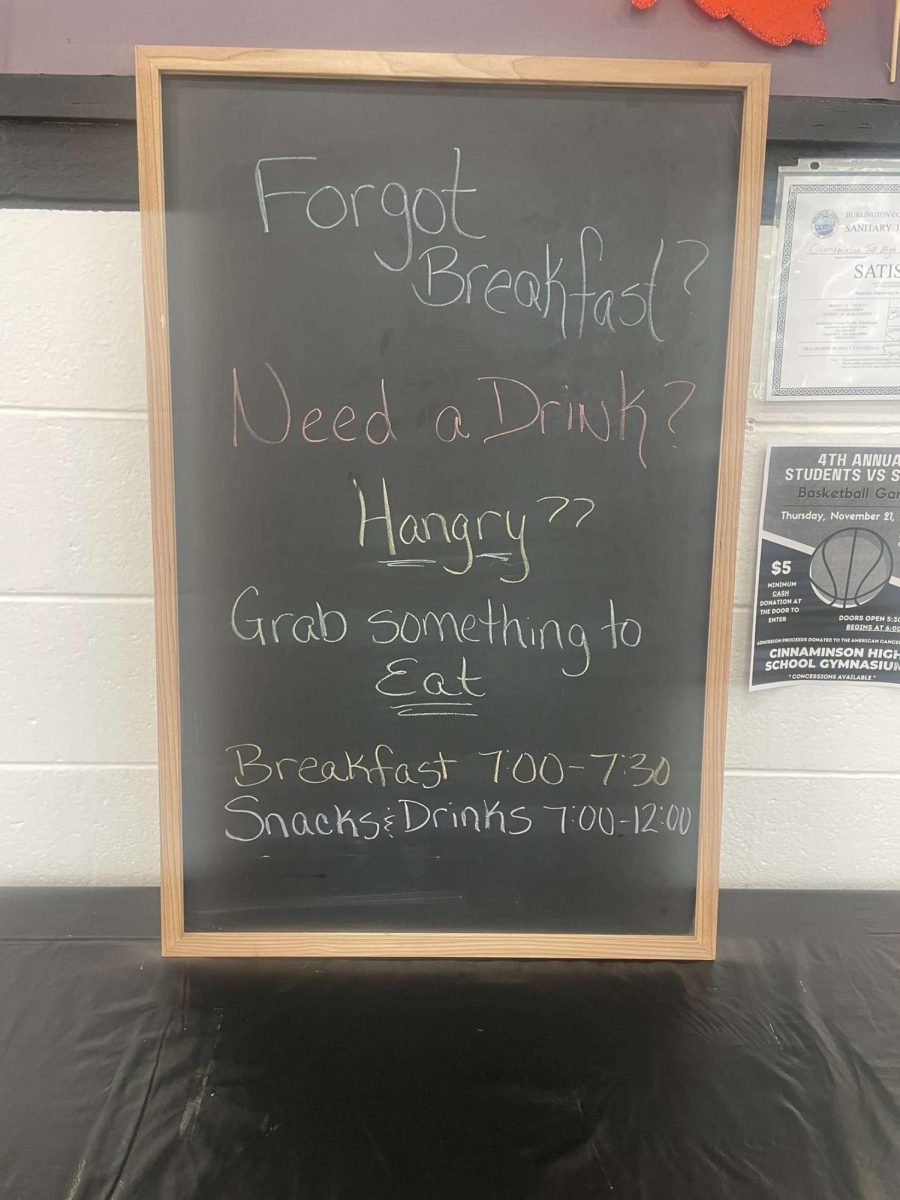 Forgot
Breakfast?
Need a Drink?
Hangry??
Grab something to
Eat
Breakfast 7:00-7:30
Snacks & Drinks 7:00-12:00
BURLINGTON CO
SANITARY I
SATIS
4TH ANNUA
STUDENTS VS S
Basketball Ga
Thursday, November 21,
$5
MINIMUM
CASH
DONATION AT
THE DOOR TO
ENTER
DOORS OPEN 5:30
BEGINS AT 6:00
ADMISSION PROCEEDS DONATED TO THE AMERICAN CANCE
CINNAMINSON HIGH
SCHOOL GYMNASIUM
*CONCESSIONS AVAILABLE*